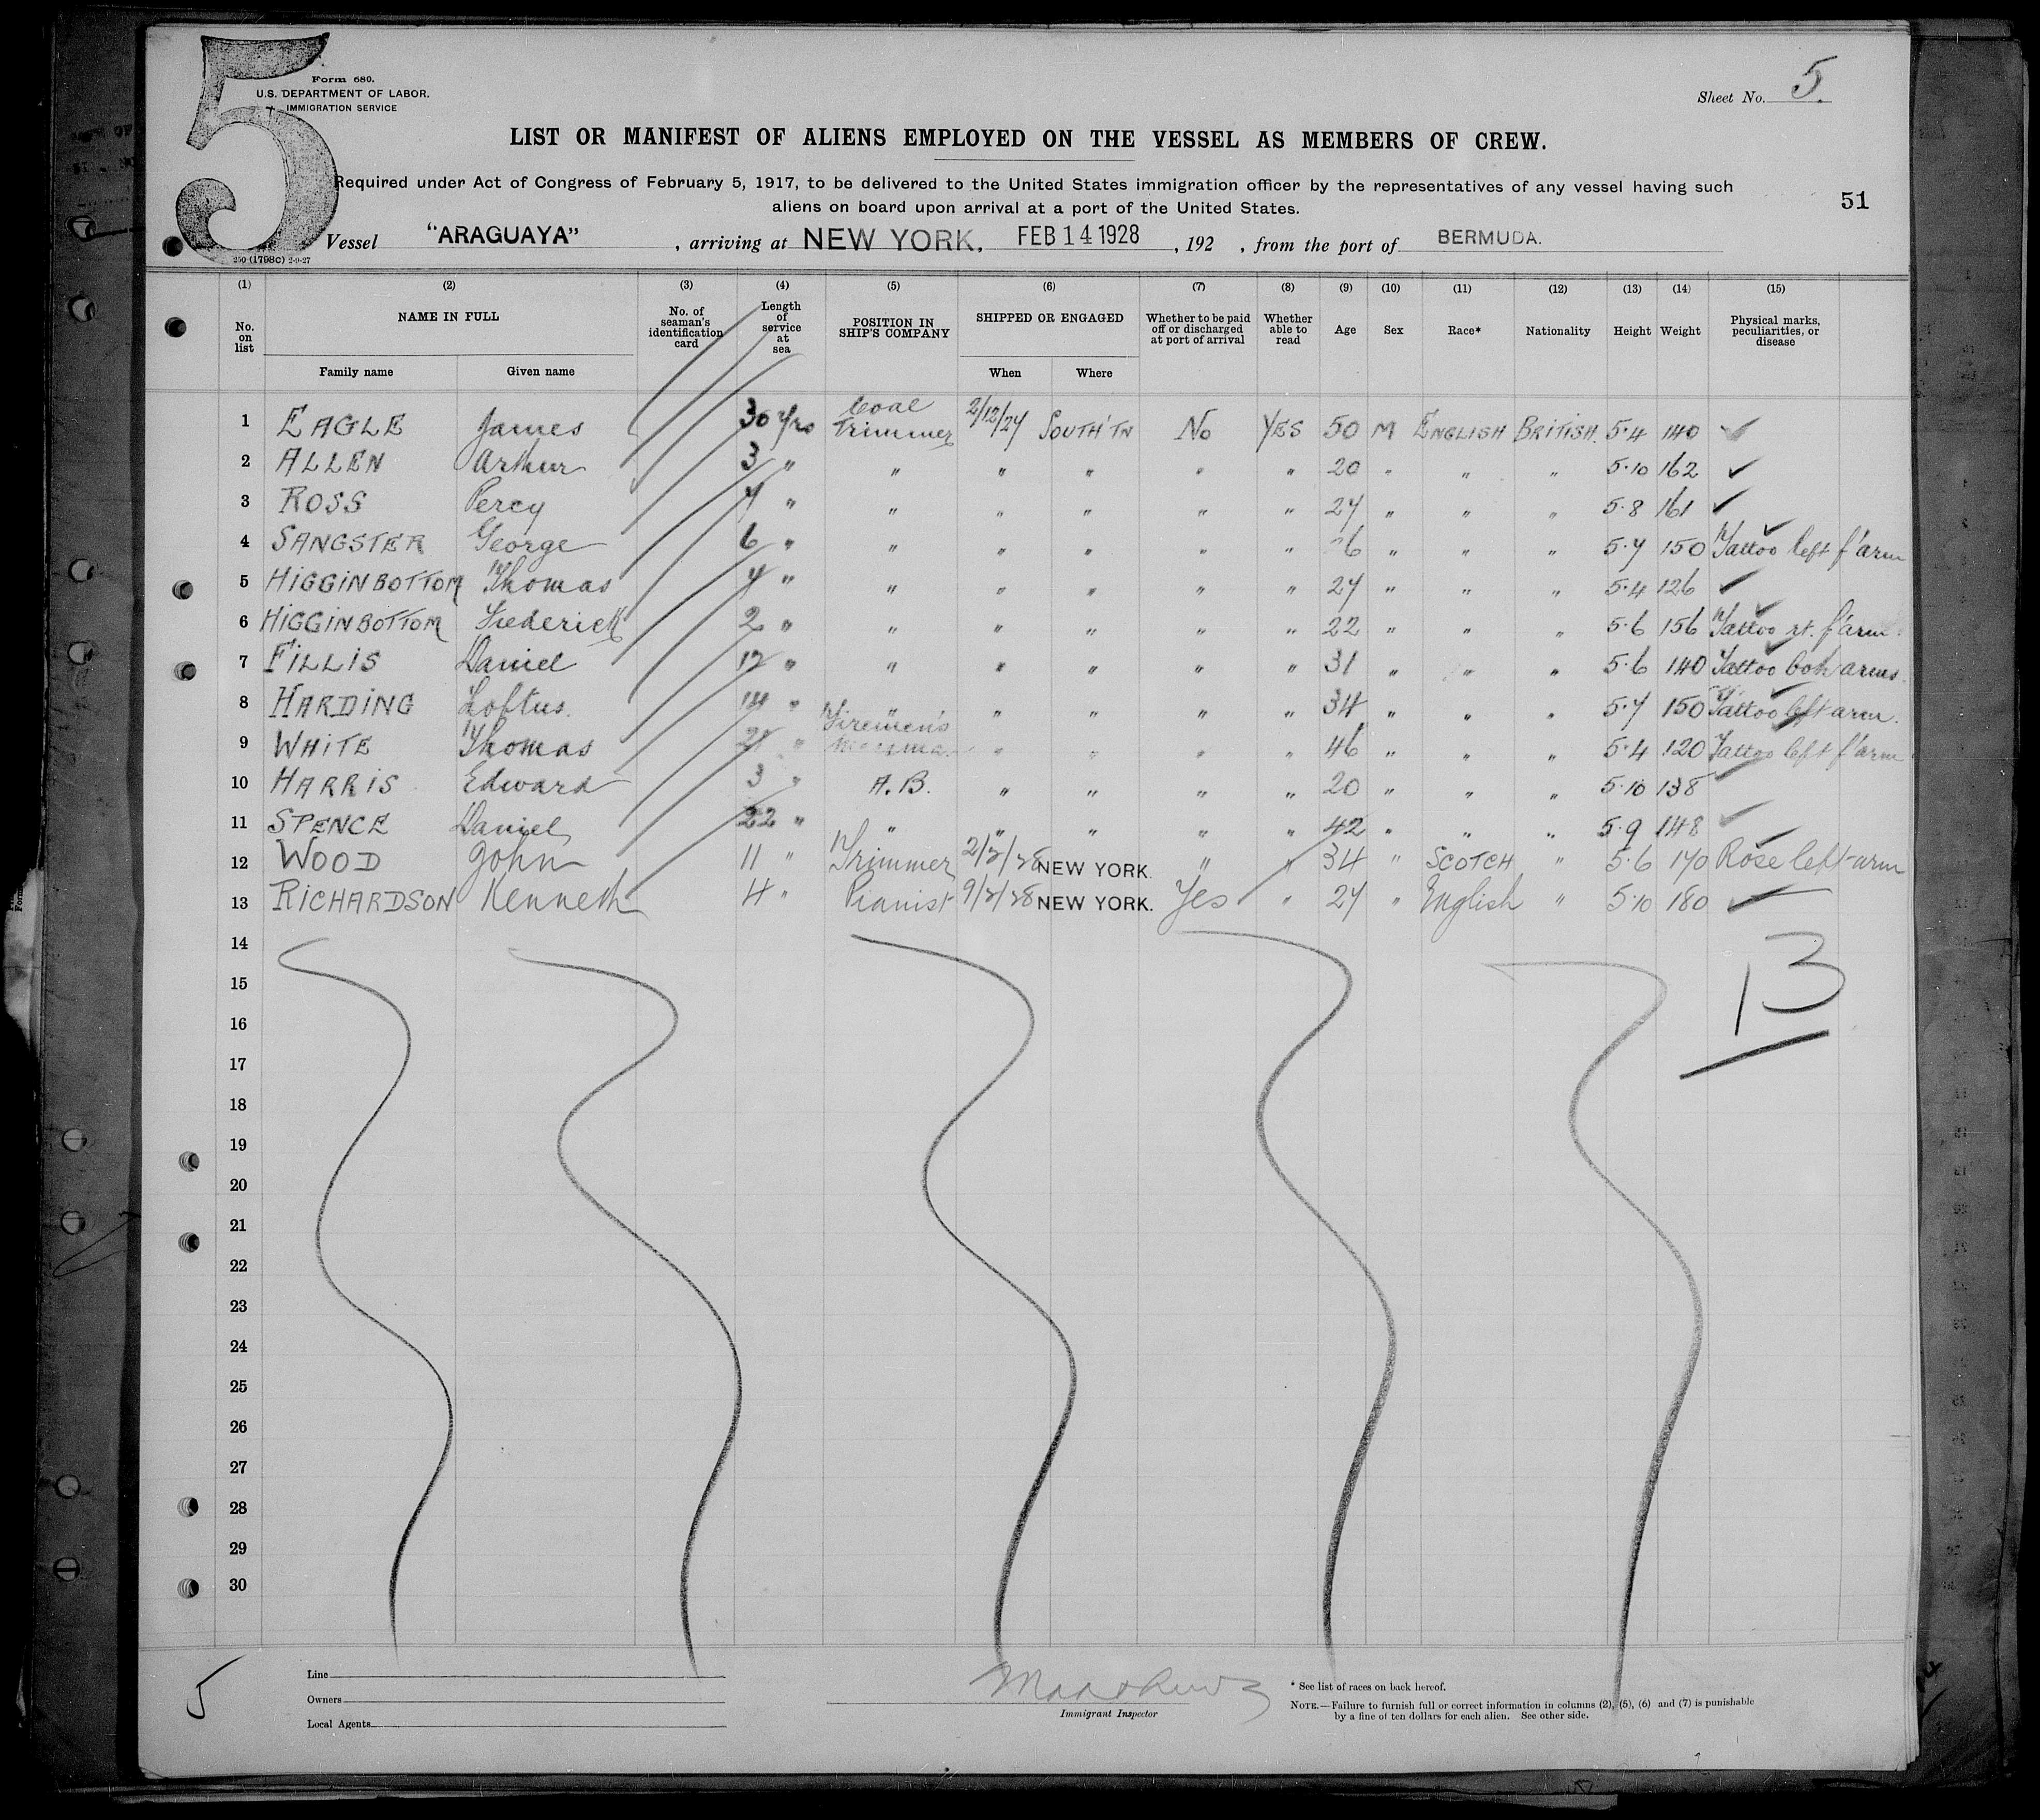 5
Form 680.
U.S. DEPARTMENT OF LABOR.
IMMIGRATION SERVICE
Sheet No. 5.
LIST OR MANIFEST OF ALIENS EMPLOYED ON THE VESSEL AS MEMBERS OF CREW.
Required under Act of Congress of February 5, 1917, to be delivered to the United States immigration officer by the representatives of any vessel having such
aliens on board upon arrival at a port of the United States.
51
Vessel "ARAGUAYA", arriving at NEW YORK, FEB 14 1928, 192 , from the port of BERMUDA.
250 (1798C) 2-9-27
(1) (2) (3) (4) (5) (6) (7) (8) (9) (10) (11) (12) (13) (14) (15)
No. on list NAME IN FULL No. of seaman's identification card Length of service at sea POSITION IN SHIP'S COMPANY SHIPPED OR ENGAGED Whether to be paid off or discharged at port of arrival Whether able to read Age Sex Race* Nationality Height Weight Physical marks, peculiarities, or disease
Family name Given name When Where
1 EAGLE James 30 Yrs Coal Trimmer 2/12/27 SOUTH'TN No YES 50 M ENGLISH BRITISH. 5.4 140 ✓
2 ALLEN Arthur 3 " " " " " " 20 " " " 5.10 162 ✓
3 ROSS Percy 7 " " " " " " 27 " " " 5.8 161 ✓
4 SANGSTER George 6 " " " " " " " " " 5.7 150 Tattoo left f'arm
5 HIGGINBOTTOM Thomas 7 " " " " " " 27 " " " 5.4 126 ✓
6 HIGGINBOTTOM Frederick 2 " " " " " " 22 " " " 5.6 156 Tattoo rt. f'arm
7 FILLIS Daniel 12 " " " " " " 31 " " " 5.6 140 Tattoo both arms.
8 HARDING Loftus. " " " " " " 34 " " " 5.7 150 Tattoo left arm.
9 WHITE Thomas 21 " Firemen's " " " " 46 " " " 5.4 120 Tattoo left f'arm
10 HARRIS Edward 3 " A.B. " " " " 20 " " " 5.10 138 ✓
11 SPENCE Daniel 22 " " " " " " 42 " " " 5.9 148 ✓
12 WOOD John 11 " Trimmer 2/2/28 NEW YORK. " " 34 " SCOTCH " 5.6 170 Rose left arm
13 RICHARDSON Kenneth 4 " Pianist 9/2/28 NEW YORK. Yes " 27 " English " 5.10 180 ✓
14
13
15
16
17
18
19
20
21
22
23
24
25
26
27
28
29
30
5
Line
Owners
Local Agents
Immigrant Inspector
* See list of races on back hereof.
NOTE.—Failure to furnish full or correct information in columns (2), (5), (6) and (7) is punishable
by a fine of ten dollars for each alien. See other side.